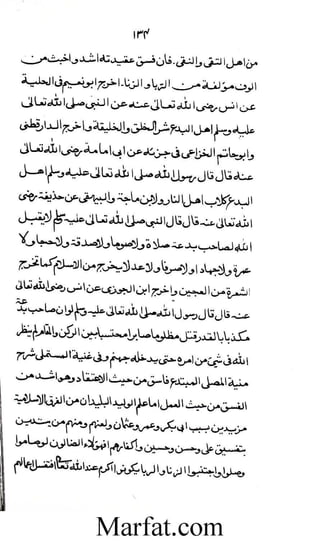 ۱۳۴
من اهل التقى والنقى. فان فسق عقيدته اشد واخبث من
الوف مؤلفة من الربا والزنا. اخرج ابو نعيم فى الحلية
عن انس رضى الله تعالى عنه عن النبى صلى الله تعالى
عليه وسلم اهل البدع شر الخلق والخليقة واخرج الدارقطنى
وابو حاتم الخزاعى فى جزئه عن ابى امامة رضى الله تعالى
عنه قال قال رسول الله صلى الله تعالى عليه وسلم اهل
البدع كلاب اهل النار ولابن ماجة والبيهقى عن حذيفة رضى
الله تعالى عنه قال قال النبى صلى الله تعالى عليه وسلم لا يقبل
الله لصاحب بدعة صلاة ولا صوما ولا صدقة ولا حجا ولا
عمرة ولا جهادا ولا صرفا ولا عدلا يخرج من الاسلام كما تخرج
الشعرة من العجين واخرج ابن الجوزى عن انس رضى الله تعالى
عنه قال قال رسول الله صلى الله تعالى عليه وسلم لو ان صاحب بدعة
مكذبا بالقدر قتل مظلوما صابرا محتسبا بين الركن والمقام لم ينظر
الله فى شئ من امره حتى يدخله جهنم وفى غنية المستملى شرح
منية المصلى المبتدع فاسق من حيث الاعتقاد وهو اشد من
الفسق من حيث العمل اما علم الوليد البليد ان من الفرق الاسلامية
من يدين بسب ابى بكر وعمر وعثمان ولعنهم ومنهم من يتدين
بتفسيق على وحسن وحسين واكفارهم افهؤلاء الضالون لو صاموا
وصلوا واجتنبوا الزنا والربا يكونوا اكرم عند الله تعالى افتقبل اعمالهم
Marfat.com